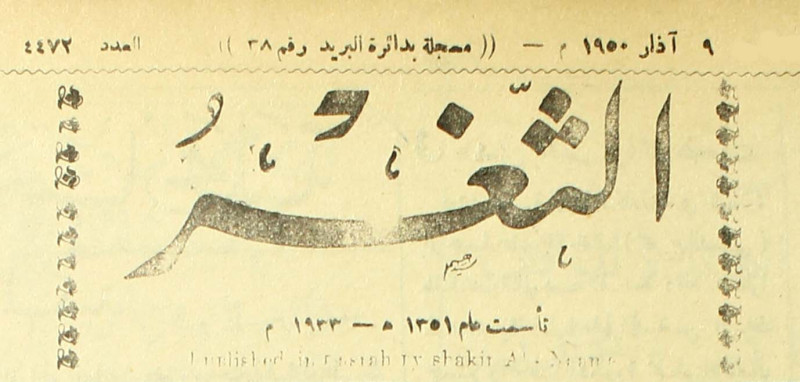 ٩ آذار ١٩٥٠ م — (( مسجلة بدائرة البريد رقم ٣٨ )) العدد ٤٤٧٢
الثَّغْرُ
تأسست عام ١٣٥١ ه — ١٩٣٣ م
Published in Basrah by shakir Al-